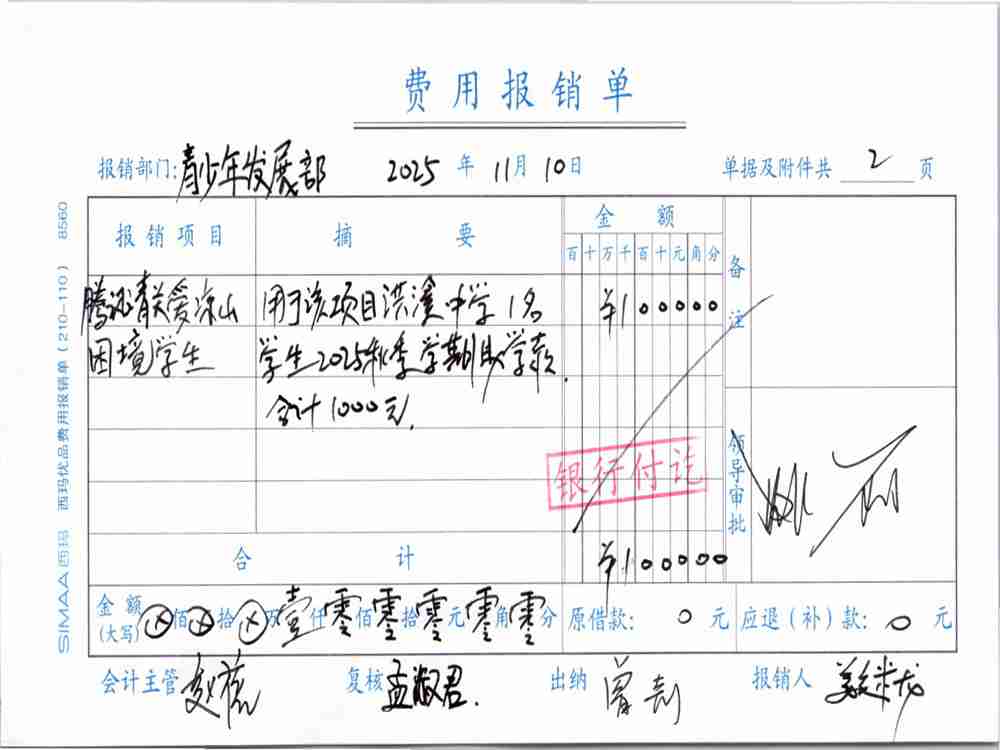 费用报销单
报销部门:青少年发展部 2025年11月10日 单据及附件共 2 页
报销项目 摘要 金额
百十万千百十元角分
备注
关爱凉山 用于该项目洪溪中学1名 ¥100000
困境学生 学生2025秋季学期助学款.
合计1000元.
银行付讫
领导审批
合计 ¥100000
金额(大写) ⊗佰⊗拾⊗万壹仟零佰零拾零元零角零分 原借款: 0 元 应退(补)款: 0 元
会计主管 复核 孟淑君. 出纳 曾 报销人 龙
SIMAA西玛 西玛优品费用报销单(210-110) 8560